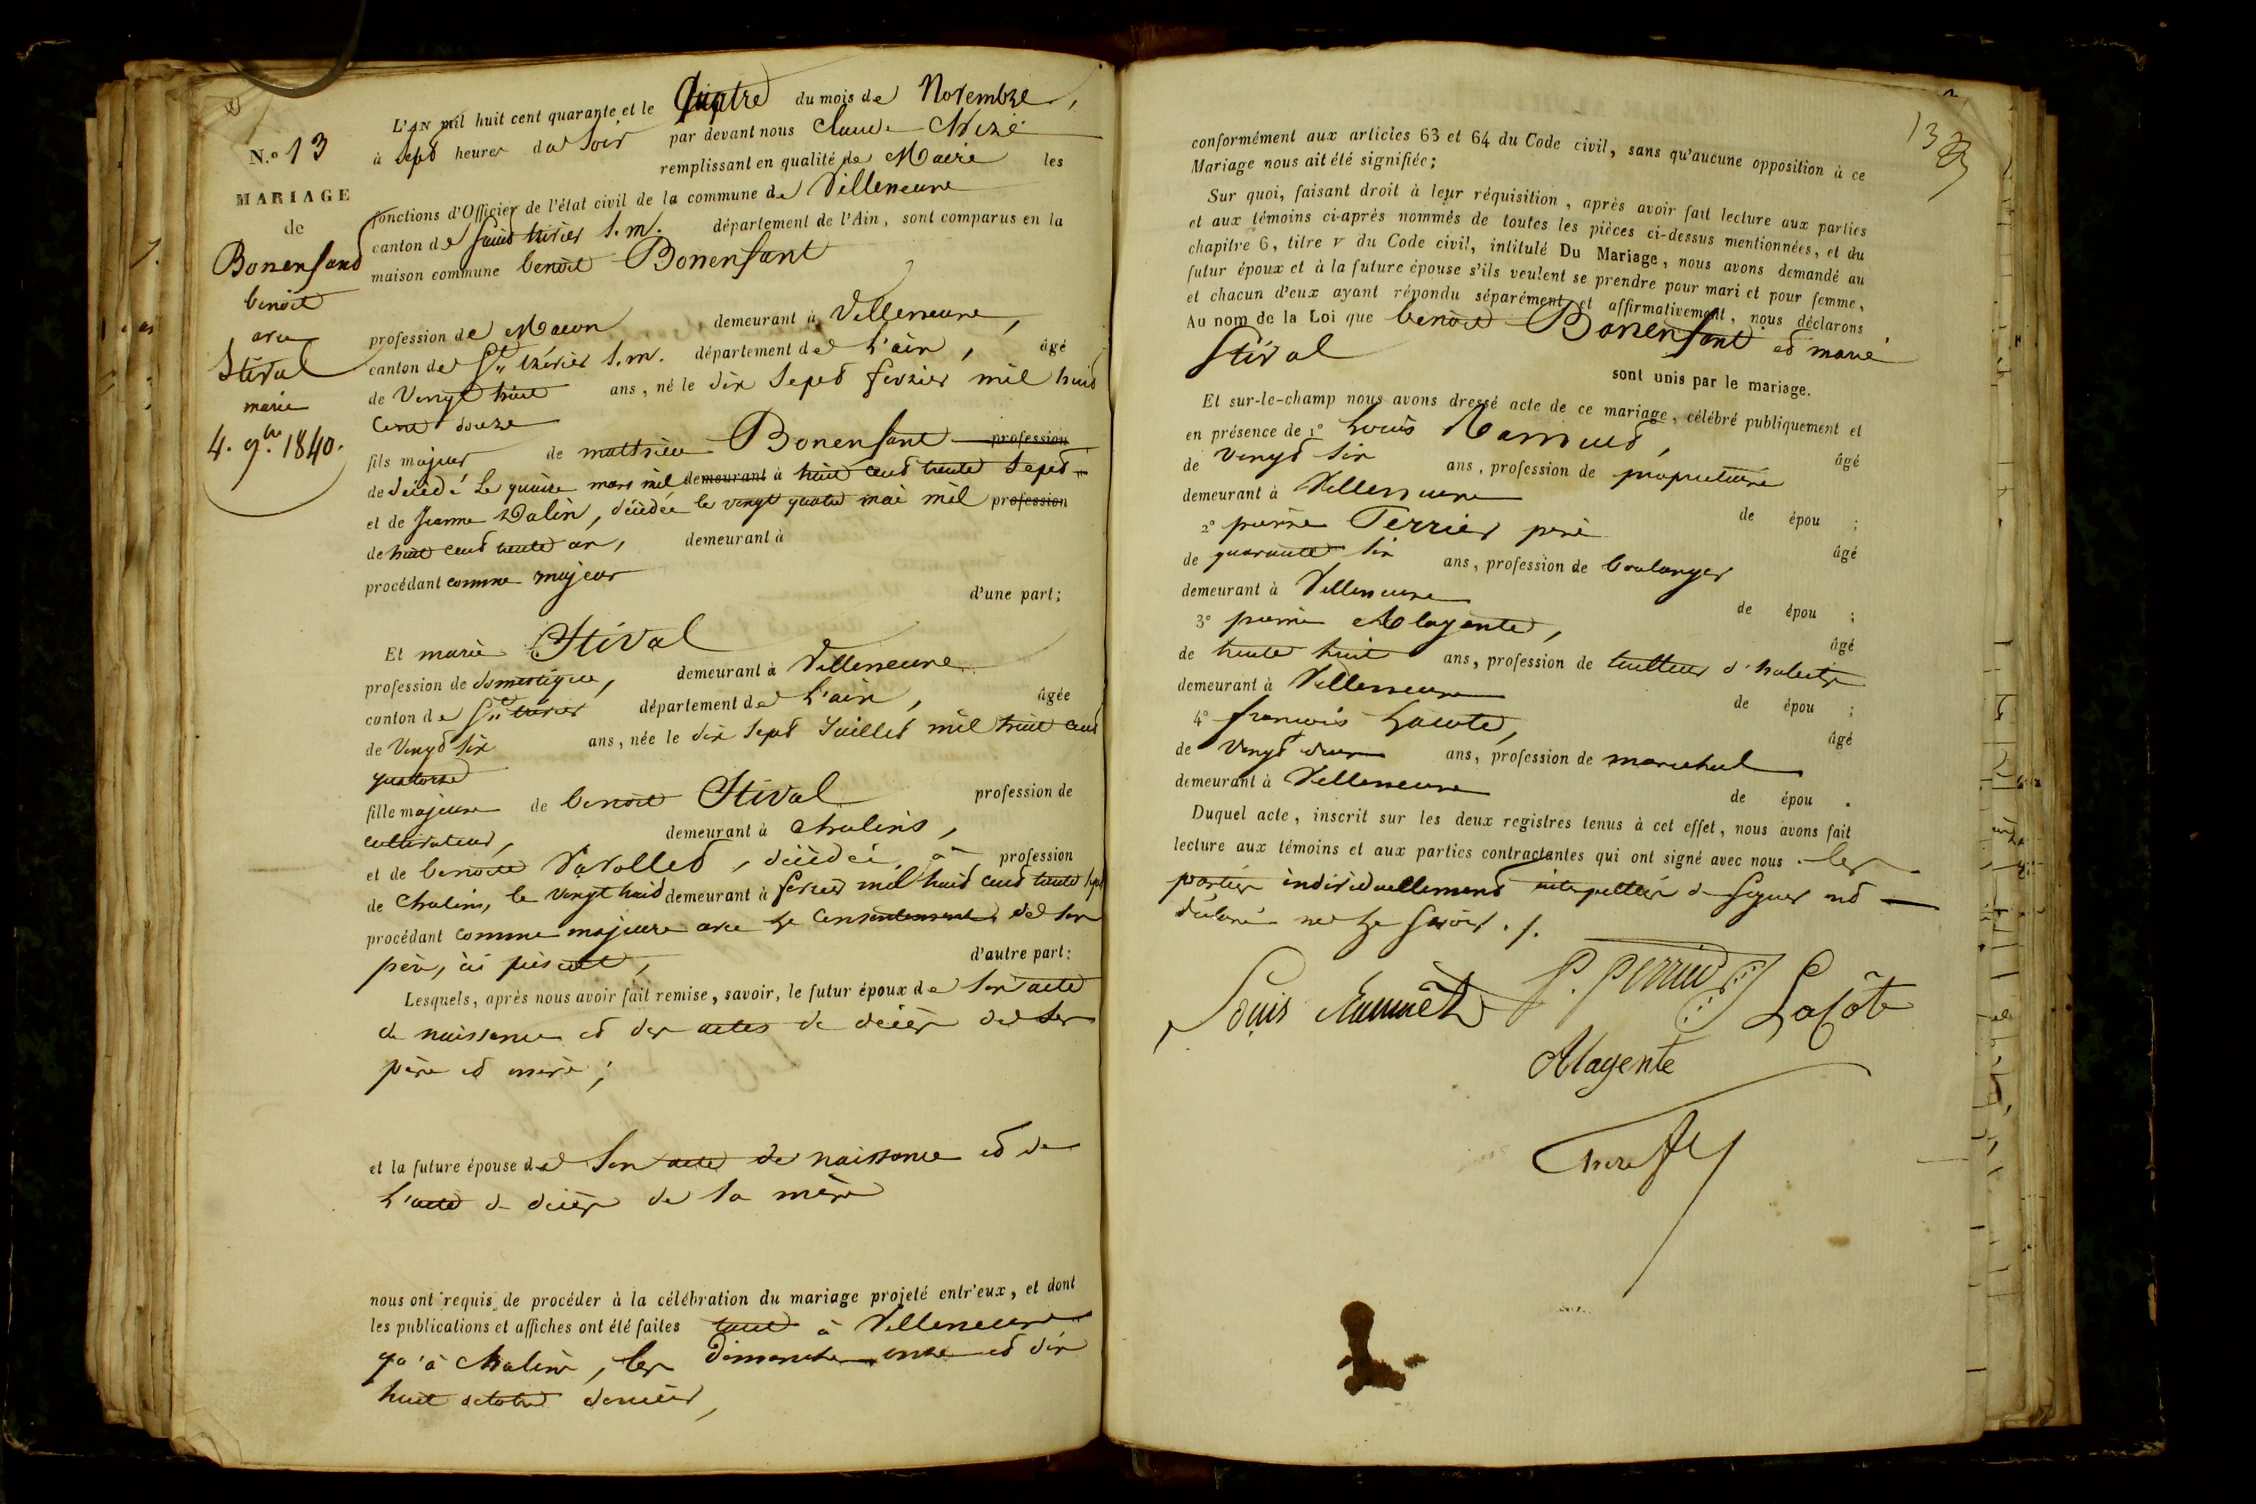 N.° 13
MARIAGE
de
Bonenfand
benoit
avec
Stival
marie
4. 9.bre 1840.
L'AN mil huit cent quarante et le Quatre du mois de Novembre,
à sept heures du soir par devant nous Claude
remplissant en qualité de Maire les
fonctions d'Officier de l'état civil de la commune de Villeneuve
canton de saint trivier s. m. département de l'Ain, sont comparus en la
maison commune benoit Bonenfant
profession de Macon demeurant à Villeneuve,
canton de St trivier s. m. département de L'ain, âgé
de Vingt huit ans, né le dix sept fevrier mil huit
cent douze
fils majeur de mathieu Bonenfant profession
de décédé le quinze mars mil demeurant à huit cent trente sept
et de Jeanne Dalin, décédée le vingt quatre mai mil profession
de huit cent trente un, demeurant à
procédant comme majeur
d'une part;
Et marie Stival
profession de domestique, demeurant à Villeneuve
canton de St trivier département de L'ain, âgée
de Vingt six ans, née le dix sept Juillet mil huit cent
quatorze
fille majeure de benoit Stival profession de
cultivateur, demeurant à chaleins,
et de benoite Varollet, décédée, à profession
de chaleins, le vingt huit demeurant à fevrier mil huit cent trente sept
procédant comme majeure avec le consentement de son
père, ici présent,
d'autre part:
Lesquels, après nous avoir fait remise, savoir, le futur époux de son acte
de naissance et des actes de décès de ses
père et mère;
et la future épouse de son acte de naissance et de
L'acte de décès de sa mère
nous ont requis de procéder à la célébration du mariage projeté entr'eux, et dont
les publications et affiches ont été faites tant à Villeneuve
qu'à chaleins, les dimanches onze et dix
huit octobre dernier,
13
conformément aux articles 63 et 64 du Code civil, sans qu'aucune opposition à ce
Mariage nous ait été signifiée;
Sur quoi, faisant droit à leur réquisition, après avoir fait lecture aux parties
et aux témoins ci-après nommés de toutes les pièces ci-dessus mentionnées, et du
chapitre 6, titre v du Code civil, intitulé Du Mariage, nous avons demandé au
futur époux et à la future épouse s'ils veulent se prendre pour mari et pour femme,
et chacun d'eux ayant répondu séparément et affirmativement, nous déclarons
Au nom de la Loi que benoit Bonenfant et marie
Stival
sont unis par le mariage.
Et sur-le-champ nous avons dressé acte de ce mariage, célébré publiquement et
en présence de 1° Louis
âgé
de vingt six ans, profession de proprietaire
demeurant à Villeneuve
de épou ;
2° pierre Perrier père
âgé
de quarante six ans, profession de boulanger
demeurant à Villeneuve
de épou ;
3° pierre Alagente,
âgé
de trente huit ans, profession de tailleur d'habits
demeurant à Villeneuve
de épou ;
4° francois Lacote,
âgé
de vingt deux ans, profession de marechal
demeurant à Villeneuve
de épou .
Duquel acte, inscrit sur les deux registres tenus à cet effet, nous avons fait
lecture aux témoins et aux parties contractantes qui ont signé avec nous. les
parties individuellement interpellées de signer ont
déclaré ne le savoir./.
Louis P. perrier LaCôte
Alagente